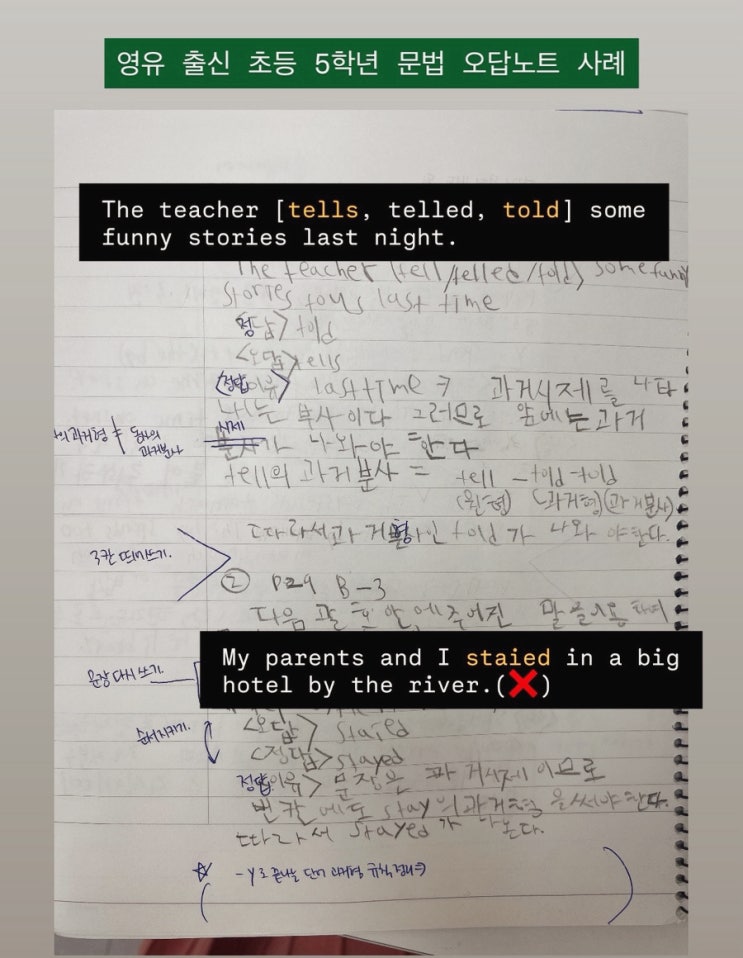 영유 출신 초등 5학년 문법 오답노트 사례
The teacher [tells, telled, told] some
funny stories last night.
The teacher (tell/telled/told) some funny
stories to us last time
정답> told
<오답> tells
<정답이유> last time 과거시제를 나타
내는 부사이다 그러므로 앞에는 과거
시제
가 나와야 한다
과거형 ≠ 동사의
과거분사
tell의 과거분사 = tell - told - told
(원형) (과거형) (과거분사)
따라서 과거형인 told가 나와야한다.
3칸 띄어쓰기.
② P29 B-3
다음 괄호 안에 주어진 말을 이용하여
My parents and I staied in a big
hotel by the river.(❌)
문장 다시 쓰기.
순서지키기.
<오답> staied
<정답> stayed
정답이유> 문장은 과거시제 이므로
빈칸에도 stay의 과거형을 써야한다.
따라서 stayed가 나온다.
☆ -y로 끝나는 단어 과거형 규칙정리⇒